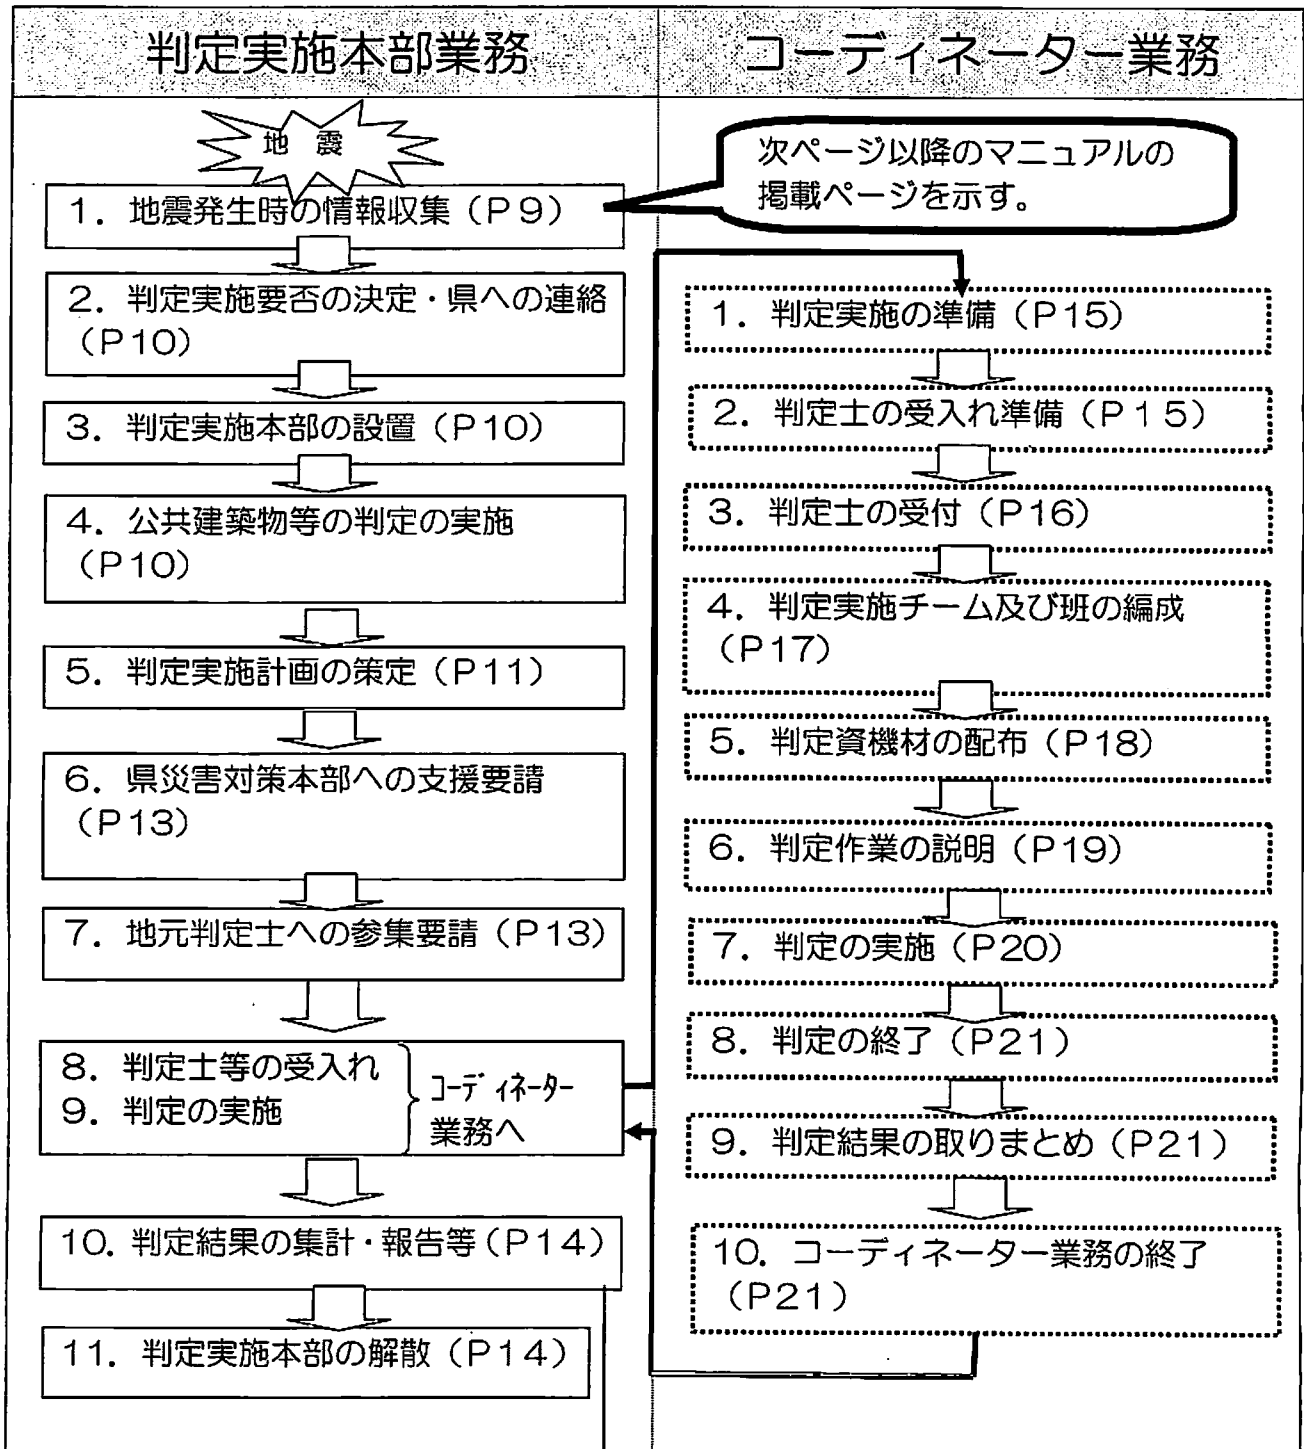 判定実施本部業務
コーディネーター業務
地 震
次ページ以降のマニュアルの
掲載ページを示す。
1．地震発生時の情報収集（P9）
2．判定実施要否の決定・県への連絡
（P10）
3．判定実施本部の設置（P10）
4．公共建築物等の判定の実施
（P10）
5．判定実施計画の策定（P11）
6．県災害対策本部への支援要請
（P13）
7．地元判定士への参集要請（P13）
8．判定士等の受入れ
9．判定の実施
コーディネーター
業務へ
10．判定結果の集計・報告等（P14）
11．判定実施本部の解散（P14）
1．判定実施の準備（P15）
2．判定士の受入れ準備（P15）
3．判定士の受付（P16）
4．判定実施チーム及び班の編成
（P17）
5．判定資機材の配布（P18）
6．判定作業の説明（P19）
7．判定の実施（P20）
8．判定の終了（P21）
9．判定結果の取りまとめ（P21）
10．コーディネーター業務の終了
（P21）